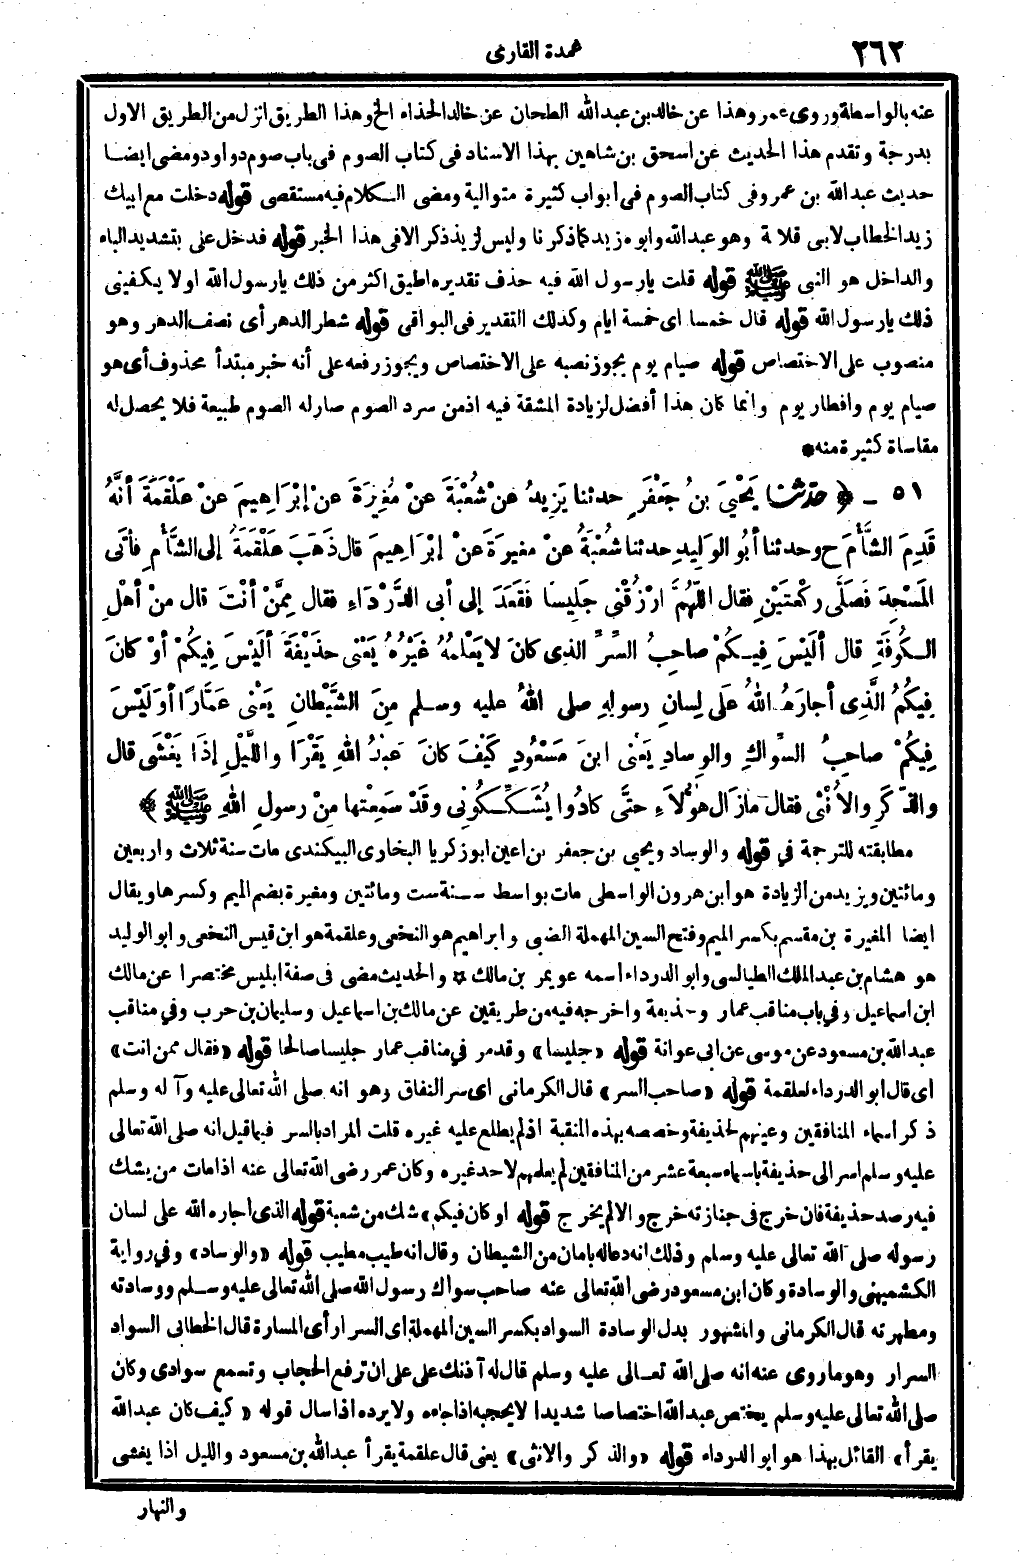 ٢٦٢
عمدة القارى
عنه بالواسطة وروى عمرو هذا عن خالد بن عبد الله الطحان عن خالد الحذاء الخ وهذا الطريق انزل من الطريق الاول
بدرجة وتقدم هذا الحديث عن اسحق بن شاهين بهذا الاسناد فى كتاب الصوم فى باب صوم داود ومضى ايضا
حديث عبد الله بن عمرو فى كتاب الصوم فى أبواب كثيرة متوالية ومضى الكلام فيه مستقصى قوله دخلت مع ابيك
زيد الخطاب لابى قلابة وهو عبد الله وابوه زيد كما ذكرنا وليس لزيد ذكر الا فى هذا الخبر قوله فدخل على بتشديد الياء
والداخل هو النبى ﷺ قوله قلت يا رسول الله فيه حذف تقديره اطيق اكثر من ذلك يا رسول الله اولا يكفينى
ذلك يا رسول الله قوله قال خمسا اى خمسة ايام وكذلك التقدير فى البواقى قوله شطر الدهر أى نصف الدهر وهو
منصوب على الاختصاص قوله صيام يوم يجوز نصبه على الاختصاص ويجوز رفعه على أنه خبر مبتدأ محذوف أى هو
صيام يوم وافطار يوم وانما كان هذا أفضل لزيادة المشقة فيه اذ من سرد الصوم صار له الصوم طبيعة فلا يحصل له
مقاساة كثيرة منه *
٥١ ـ ﴿ حدثنا يَحْيَى بنُ جَعْفَرٍ حدثنا يَزِيدُ عنْ شُعْبَةَ عَنْ مُغِيرَةَ عنْ إبْرَاهِيمَ عنْ عَلْقَمَةَ أنَّهُ
قَدِمَ الشَّأْمَ ح وحدثنا أبُو الوَلِيدِ حدثنا شُعْبَةُ عنْ مغيرَةَ عنْ إبْرَاهِيمَ قال ذَهَبَ عَلْقَمَةُ إلى الشَّأْمِ فأتَى
المَسْجِدَ فَصَلَّى ركْعتَيْنِ فقال اللّهُمَّ ارْزُقْنِي جَلِيسًا فَقَعَدَ إلى أبى الدَّرْدَاءِ فقال مِمَّنْ أنْتَ قال منْ أهْلِ
الكُوفَةِ قال ألَيْسَ فِيكُمْ صاحِبُ السِّرِّ الذى كانَ لا يَعْلمُهُ غَيْرُهُ يَعْنِى حذَيْفَةَ ألَيْسَ فِيكُمْ أوْ كانَ
فِيكُمُ الَّذِى أجارَهُ اللهُ عَلَى لِسانِ رسولِهِ صلى اللهُ عليه وسلم مِنَ الشَّيْطانِ يَعْنِى عَمَّارًا أوَلَيْسَ
فِيكُمْ صاحِبُ السِّواكِ والوِسادِ يَعْنِى ابنَ مَسْعُودٍ كَيْفَ كانَ عَبْدُ اللهِ يَقْرَأُ واللَّيْلِ إذَا يَغْشَى قال
والذَّكَرِ والأُنْثَى فقال ما زَالَ هؤُلاَءِ حتَّى كادُوا يُشَكِّكُونِى وقَدْ سَمِعْتها مِنْ رسولِ اللهِ ﷺ ﴾
مطابقته للترجمة في قوله والوساد ويحيى بن جعفر بن اعين ابو زكريا البخارى البيكندى مات سنة ثلاث واربعين
ومائتين ويزيد من الزيادة هو ابن هرون الواسطى مات بواسط سنة ست ومائتين ومغيرة بضم الميم وكسرها ويقال
ايضا المغيرة بن مقسم بكسر الميم وفتح السين المهملة الضبى وابراهيم هو النخعى وعلقمة هو ابن قيس النخعى وابو الوليد
هو هشام بن عبد الملك الطيالسى وابو الدرداء اسمه عويمر بن مالك * والحديث مضى فى صفة ابليس مختصرا عن مالك
ابن اسماعيل وفي باب مناقب عمار وحذيفة واخرجه فيه من طريقين عن مالك بن اسماعيل وسليمان بن حرب وفي مناقب
عبد الله بن مسعود عن موسى عن ابى عوانة قوله «جليسا» وقد مر في مناقب عمار جليسا صالحا قوله «فقال ممن انت»
اى قال ابو الدرداء لعلقمة قوله «صاحب السر» قال الكرمانى اى سر النفاق وهو انه صلى الله تعالى عليه وآله وسلم
ذكر أسماء المنافقين وعينهم لحذيفة وخصصه بهذه المنقبة اذ لم يطلع عليه غيره قلت المراد بالسر فيما قيل انه صلى الله تعالى
عليه وسلم اسر الى حذيفة باسماء سبعة عشر من المنافقين لم يعلمهم لاحد غيره وكان عمر رضى الله تعالى عنه اذا مات من يشك
فيه رصد حذيفة فان خرج فى جنازته خرج والا لم يخرج قوله او كان فيكم» شك من شعبة قوله الذى أجاره الله على لسان
رسوله صلى الله تعالى عليه وسلم وذلك انه دعا له بامان من الشيطان وقال انه طيب مطيب قوله «والوساد» وفي رواية
الكشميهنى والوسادة وكان ابن مسعود رضى الله تعالى عنه صاحب سواك رسول الله صلى الله تعالى عليه وسلم ووسادته
ومطهرته قال الكرمانى والمشهور بدل الوسادة السواد بكسر السين المهملة اى السرار أى المسارة قال الخطابى السواد
السرار وهو ما روى عنه انه صلى الله تعالى عليه وسلم قال له آذنك على على ان ترفع الحجاب وتسمع سوادى وكان
صلى الله تعالى عليه وسلم يختص عبد الله اختصاصا شديدا لا يحجبه اذا جاءه ولا يرده اذا سال قوله «كيف كان عبد الله
يقرأ» القائل بهذا هو ابو الدرداء قوله «والذكر والانثى» يعنى قال علقمة يقرأ عبد الله بن مسعود والليل اذا يغشى
والنهار